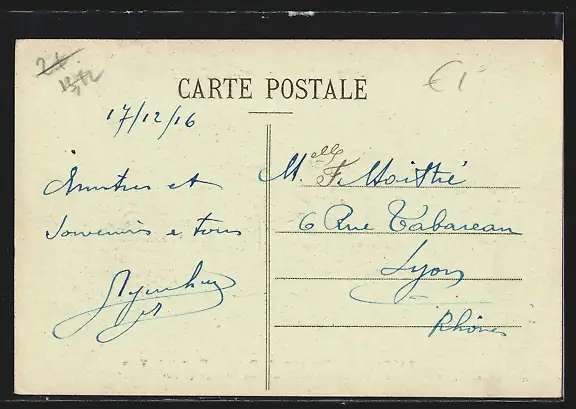 CARTE POSTALE
€1-
17/12/16
Amitiés et
souvenirs a tous
Melle F. Moithié
6 Rue Tabareau
Lyon
Rhône